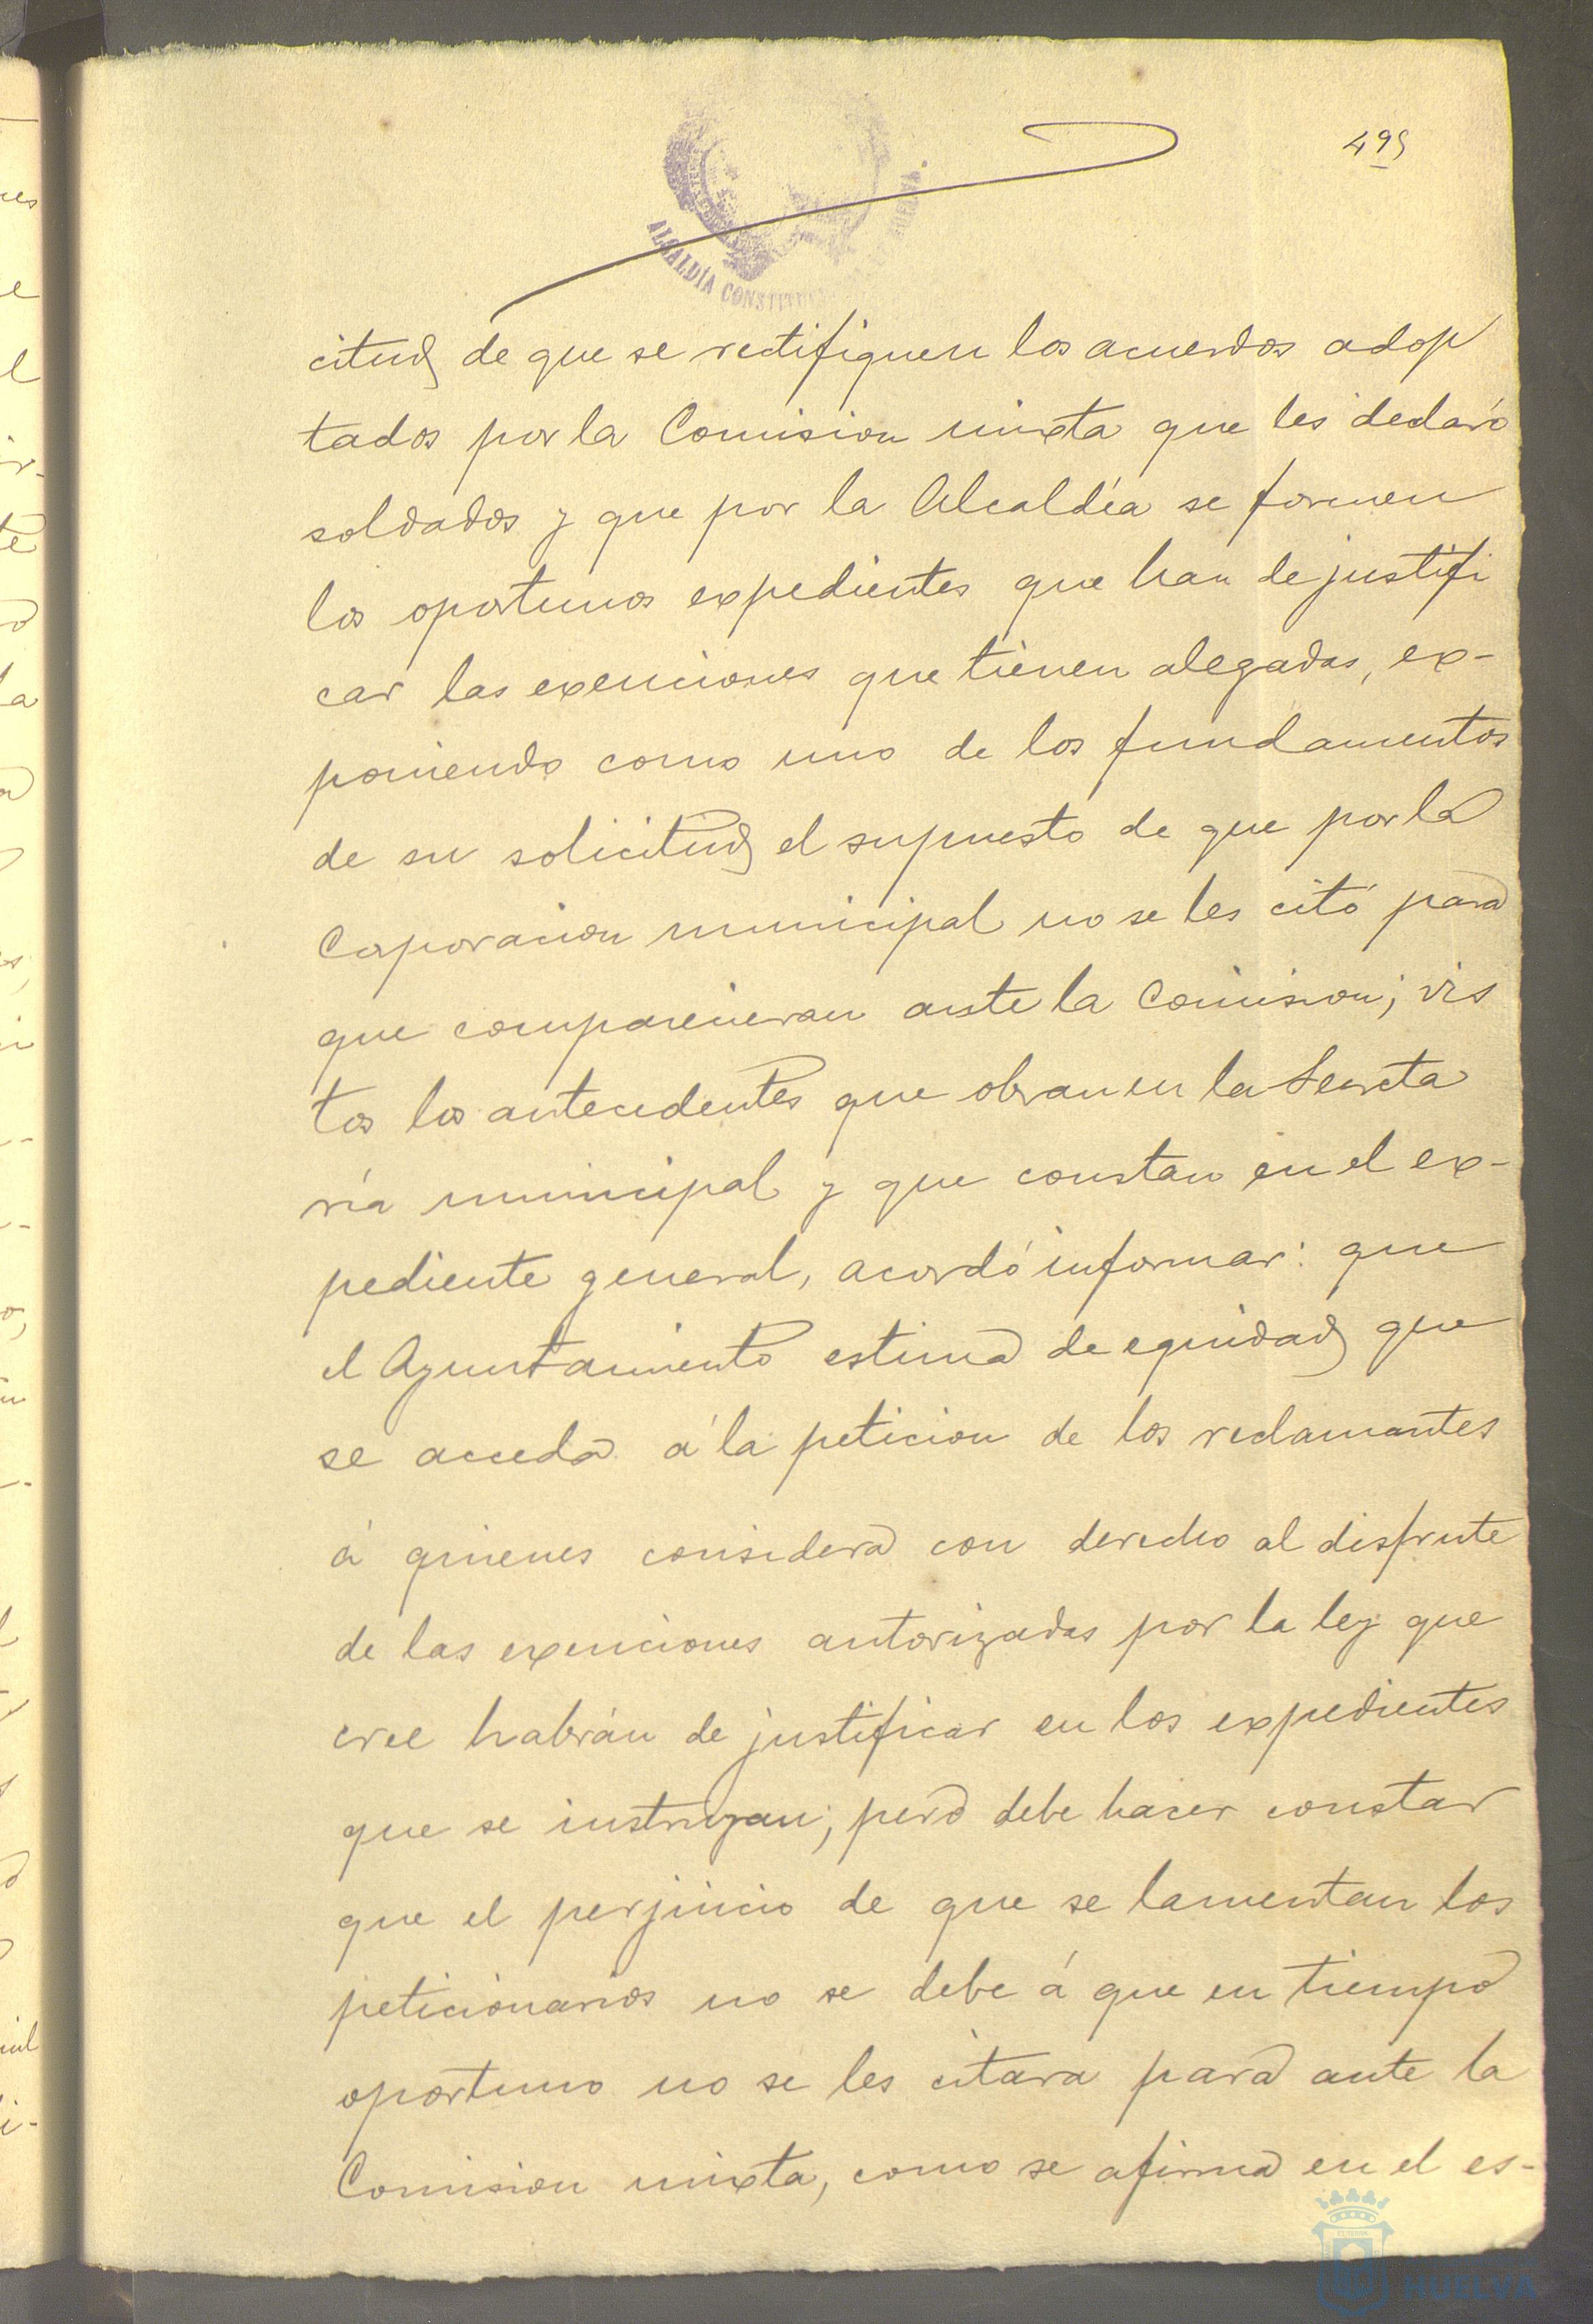 495
ALCALDÍA CONSTITU HUELVA.
citud de que se rectifiquen los acuerdos adop
tados por la Comision mixta que les declaró
soldados y que por la Alcaldía se formen
los oportunos expedientes que han de justifi
car las exenciones que tienen alegadas, ex-
poniendo como uno de los fundamentos
de su solicitud el supuesto de que por la
Corporacion municipal no se les citó para
que comparecieran ante la Comision; vis
tos los antecedentes que obran en la Secreta
ría municipal y que constan en el ex-
pediente general, acordó informar: que
el Ayuntamiento estima de equidad que
se acceda á la peticion de los reclamantes
á quienes considera con derecho al disfrute
de las exenciones autorizadas por la ley que
cree habrán de justificar en los expedientes
que se instruyan; pero debe hacer constar
que el perjuicio de que se lamentan los
peticionarios no se debe á que en tiempo
oportuno no se les citara para ante la
Comision mixta, como se afirma en el es-
HUELVA